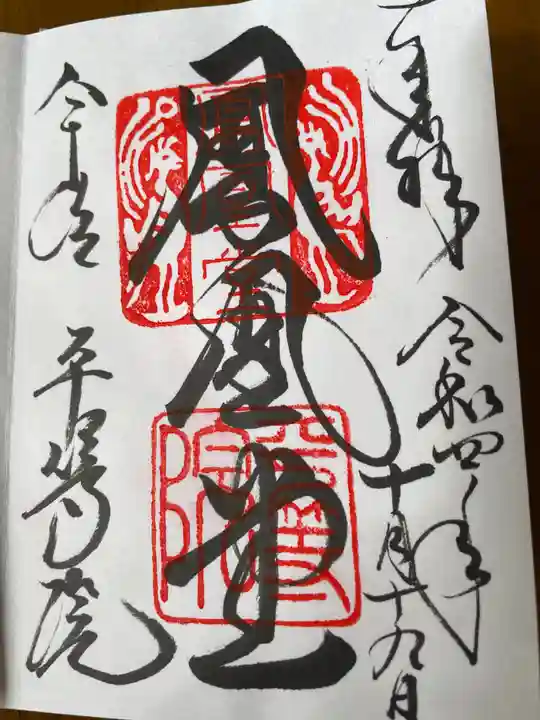 奉拝
令和四年
十月十九日
鳳凰堂
平等院